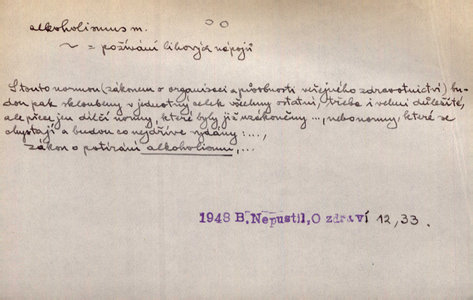 alkoholismus m.
~ = požívání lihových nápojů
S touto normou (zákonem o organisaci a působnosti veřejného zdravotnictví) bu-
dou pak skloubeny v jednotný celek všechny ostatní, třeba i velmi důležité,
ale přece jen dílčí normy, které byly již uzákoněny ..., nebo normy, které se
chystají a budou co nejdříve vydány: ...,
zákon o potírání alkoholismu, ...
1948 B. Nepustil, O zdraví 12, 33.